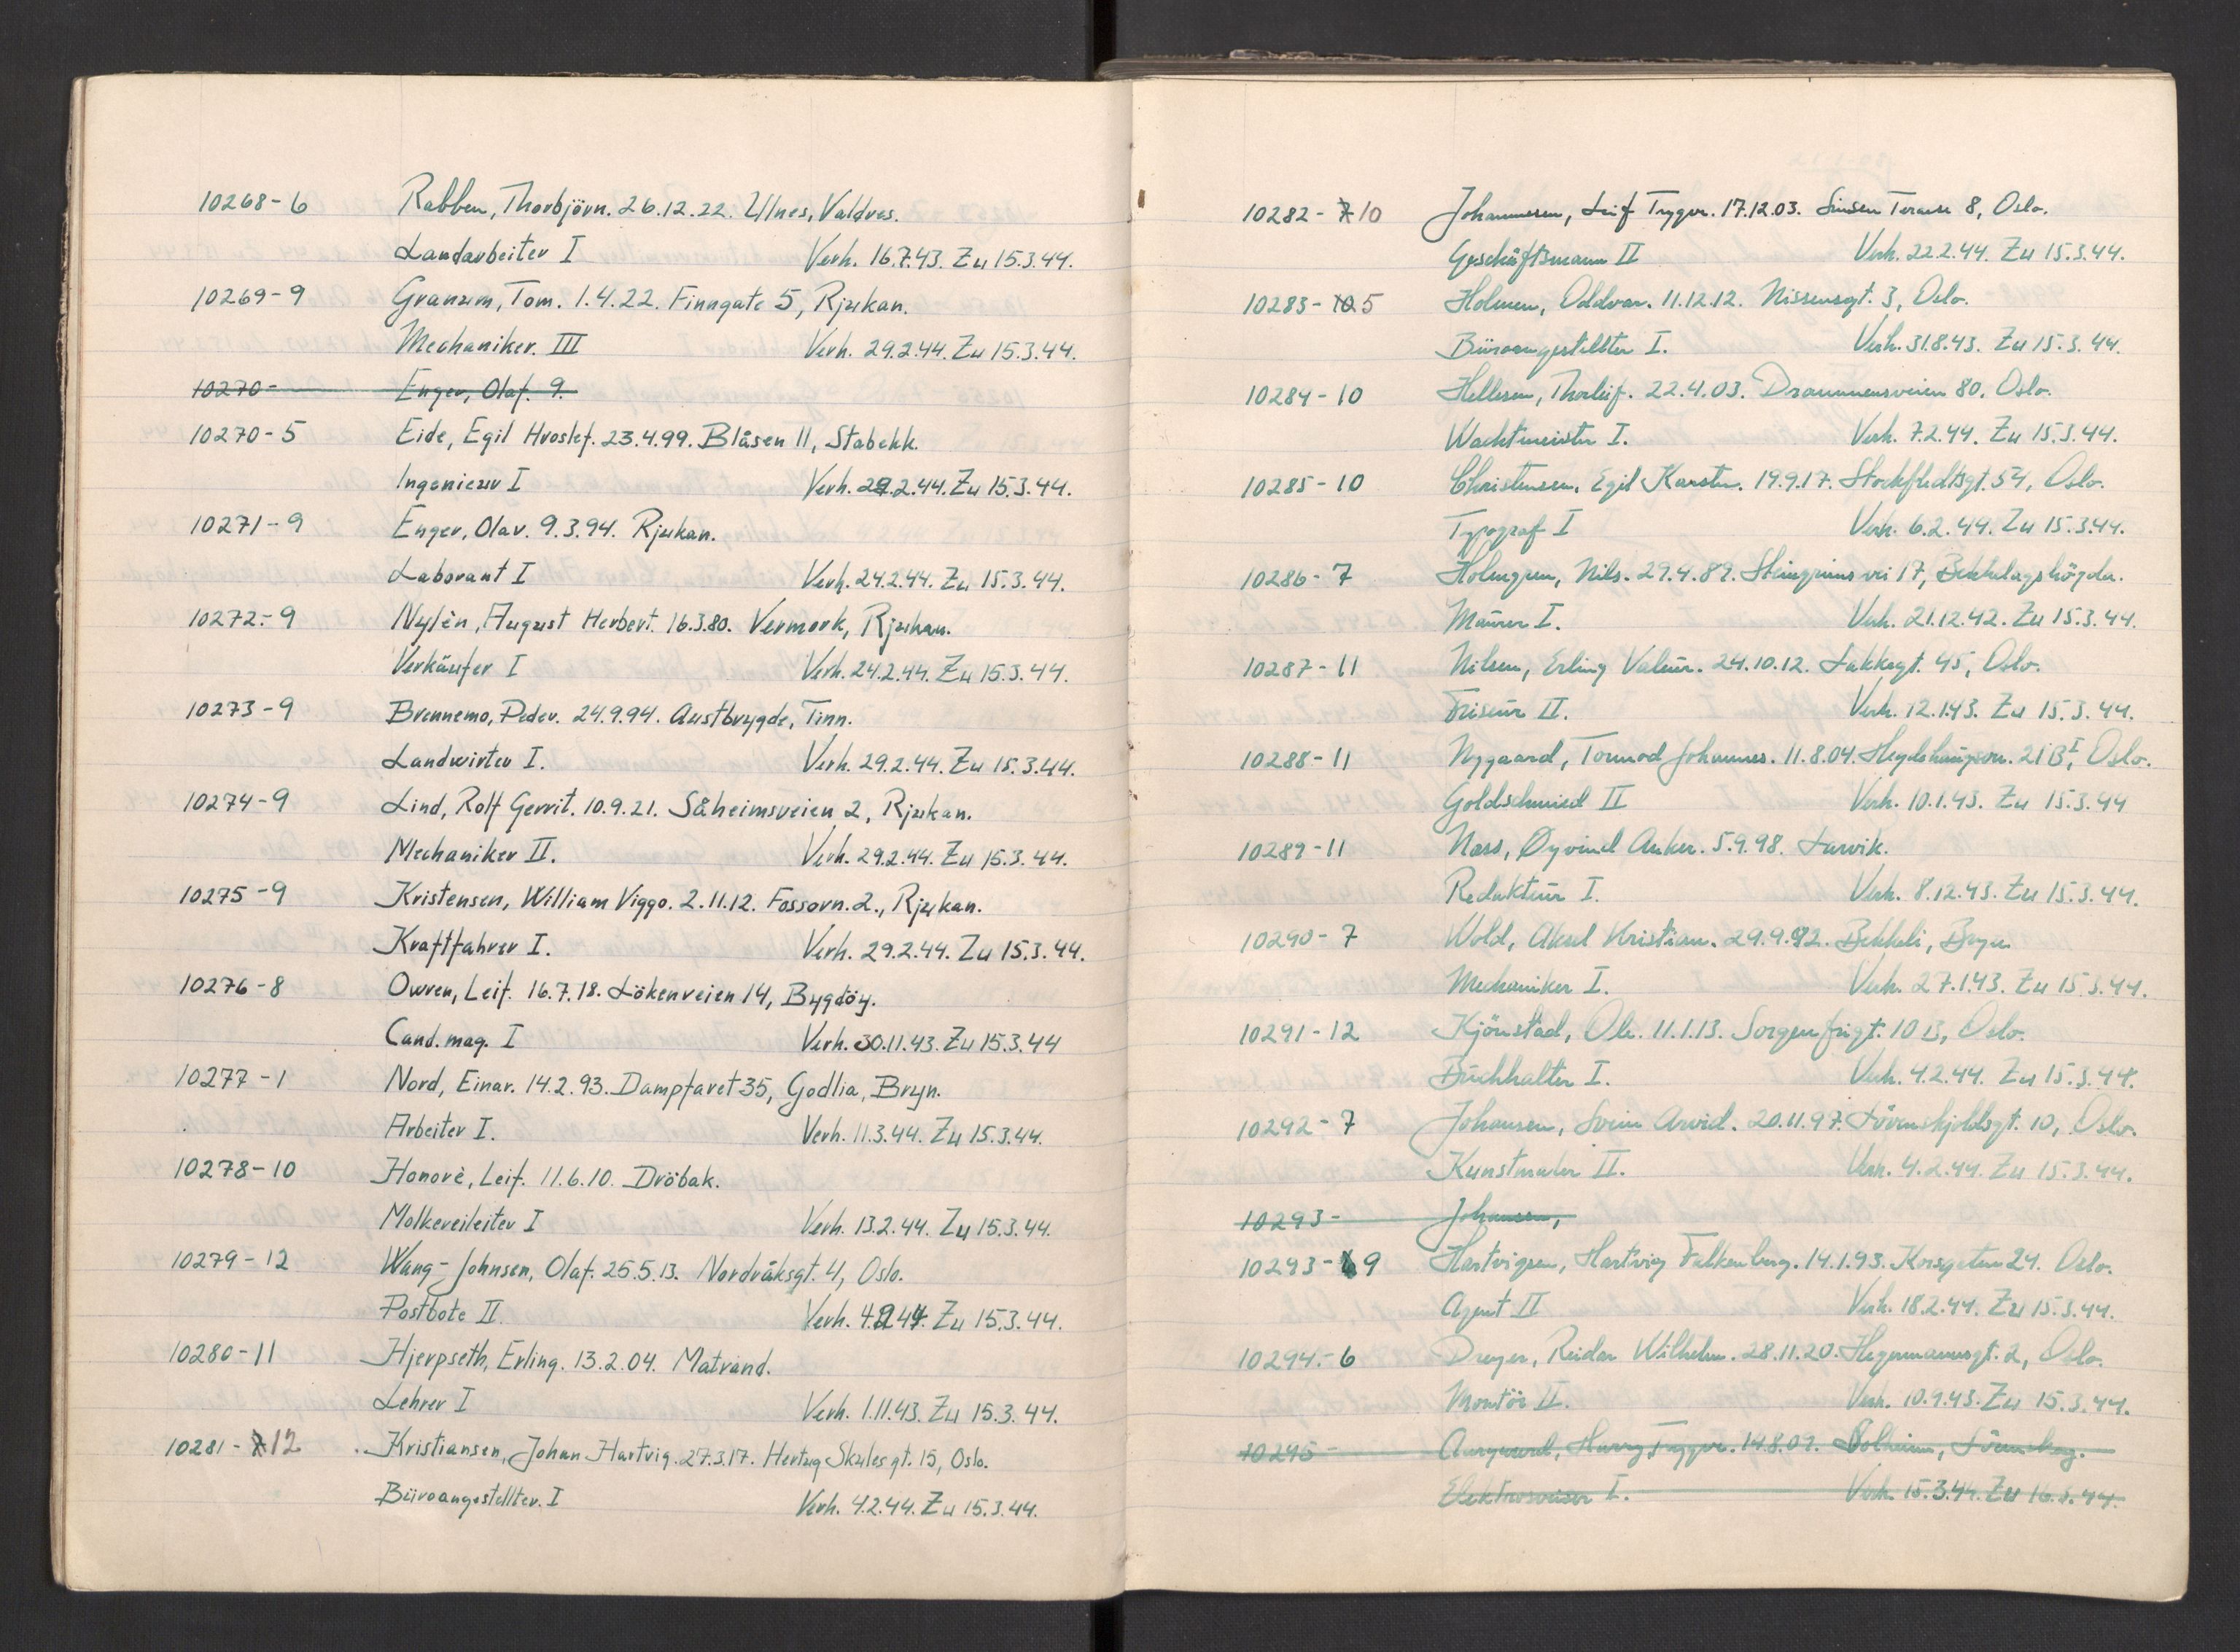 10268-6 Rabben, Thorbjörn. 26.12.22. Ulnes, Valdres.
Landarbeiter I Verh. 16.7.43. Zu 15.3.44.
10269-9 Granum, Tom. 1.4.22. Finngate 5, Rjukan.
Mechaniker. III Verh. 29.2.44. Zu 15.3.44.
10270- Enger, Olaf. 9.
10270-5 Eide, Egil Hroslef. 23.4.99. Blåsen 11, Stabekk.
Ingenieur I Verh. 29.2.44. Zu 15.3.44.
10271-9 Enger, Olav. 9.3.94. Rjukan.
Laborant I Verh. 24.2.44. Zu 15.3.44.
10272.-9 Nylèn, August Herbert. 16.3.80. Vermork, Rjukan.
Verkäufer I Verh. 24.2.44. Zu 15.3.44.
10273-9 Brennemo, Peder. 24.9.94. Austbygde, Tinn.
Landwirter I. Verh. 29.2.44. Zu 15.3.44.
10274-9 Lind, Rolf Gerrit. 10.9.21. Såheimsveien 2, Rjukan.
Mechaniker II. Verh. 29.2.44. Zu 15.3.44.
10275-9 Kristensen, William Viggo. 2.11.12. Fossovn. 2., Rjukan.
Kraftfahrer I. Verh. 29.2.44. Zu 15.3.44.
10276-8 Owren, Leif. 16.7.18. Lökenveien 14, Bygdöy.
Cand. mag. I Verh. 30.11.43. Zu 15.3.44
10277-1 Nord, Einar. 14.2.93. Dampfaret 35, Godlia, Bryn.
Arbeiter I. Verh. 11.3.44. Zu 15.3.44.
10278-10 Honorè, Leif. 11.6.10. Dröbak.
Molkereileiter I Verh. 13.2.44. Zu 15.3.44.
10279-12 Wang-Johnsen, Olaf. 25.5.13. Nordråksgt. 4, Oslo.
Postbote II. Verh. 4.2.44. Zu 15.3.44.
10280-11 Hjerpseth, Erling. 13.2.04. Matrand.
Lehrer I Verh. 1.11.43. Zu 15.3.44.
10281-7 12 Kristiansen, Johan Hartvig. 27.3.17. Hertug Skulesgt. 15, Oslo.
Büroangestellter. I Verh. 4.2.44. Zu 15.3.44.
10282-7 10 Johannesen, Leif Trygve. 17.12.03. Sinsen Terasse 8, Oslo.
Geschäftsmann II Verh. 22.2.44. Zu 15.3.44.
10283-10 5 Holmen, Oddvar. 11.12.12. Nissensgt. 3, Oslo.
Büroangestellter I. Verh. 31.8.43. Zu 15.3.44.
10284-10 Hellesen, Thorleif. 22.4.03. Drammensveien 80, Oslo.
Wachtmeister I. Verh. 7.2.44. Zu 15.3.44.
10285-10 Christensen, Egil Karsten. 19.9.17. Stockfledtsgt. 54, Oslo.
Typograf I Verh. 6.2.44. Zu 15.3.44.
10286-7 Holmgren, Nils. 29.4.89. Steingrims vei 17, Bekkelagshögda.
Maurer I. Verh. 21.12.42. Zu 15.3.44.
10287-11 Nilsen, Erling Valeur. 24.10.12. Lakkegt. 45, Oslo.
Friseur II. Verh. 12.1.43. Zu 15.3.44.
10288-11 Nygaard, Tormod Johannes. 11.8.04. Hegdehaugson. 21 B I, Oslo.
Goldschmied II Verh. 10.1.43. Zu 15.3.44
10289-11 Næss, Øyvind Anker. 5.9.98. Larvik.
Redakteur I. Verh. 8.12.43. Zu 15.3.44.
10290-7 Wold, Aksel Kristian. 29.9.92. Bekkeli,
Mechaniker I. Verh. 27.1.43. Zu 15.3.44.
10291-12 Kjönstad, Ole. 11.1.13. Sorgenfrigt. 10 B, Oslo.
Buchhalter I. Verh. 4.2.44. Zu 15.3.44.
10292-7 Johansen, Svein Arvid. 20.11.97. Lövenskjoldsgt. 10, Oslo.
Kunstmaler II. Verh. 4.2.44. Zu 15.3.44.
10293- Johansen,
10293-9 Hartvigsen, Hartvig Falkenberg. 14.1.93. Korsgaten 24. Oslo.
Agent II Verh. 18.2.44. Zu 15.3.44.
10294.-6 Dreyer, Reidar Wilhelm. 28.11.20. Hegermannsgt. 2, Oslo.
Montör II. Verh. 10.9.43. Zu 15.3.44.
10295- Harry Trygve. 14.8.09. Solheim, Lörenskog.
I. Verh. 15.3.44. Zu 16.3.44.